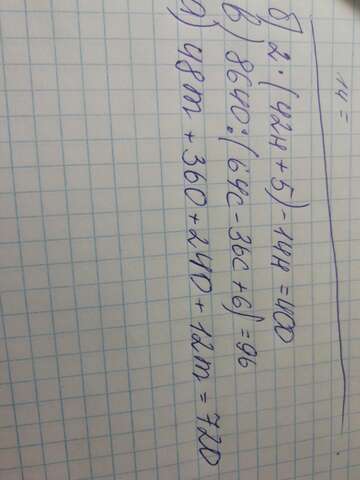 14 =
б) 2 · (42y + 5) - 14y = 400
в) 8640 : (64c - 36c + 6) = 96
) 48m + 360 + 240 + 12m = 720